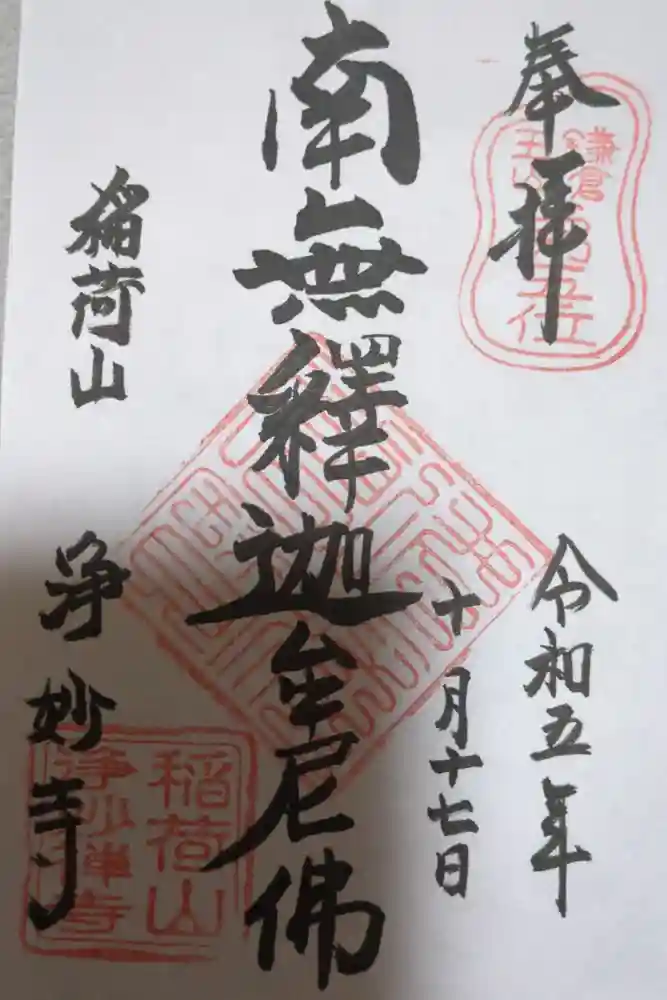 奉拝
鎌倉
五山第五位
令和五年
十月十七日
南無釋迦牟尼佛
稲荷山
浄妙寺
稲荷山
浄妙禅寺